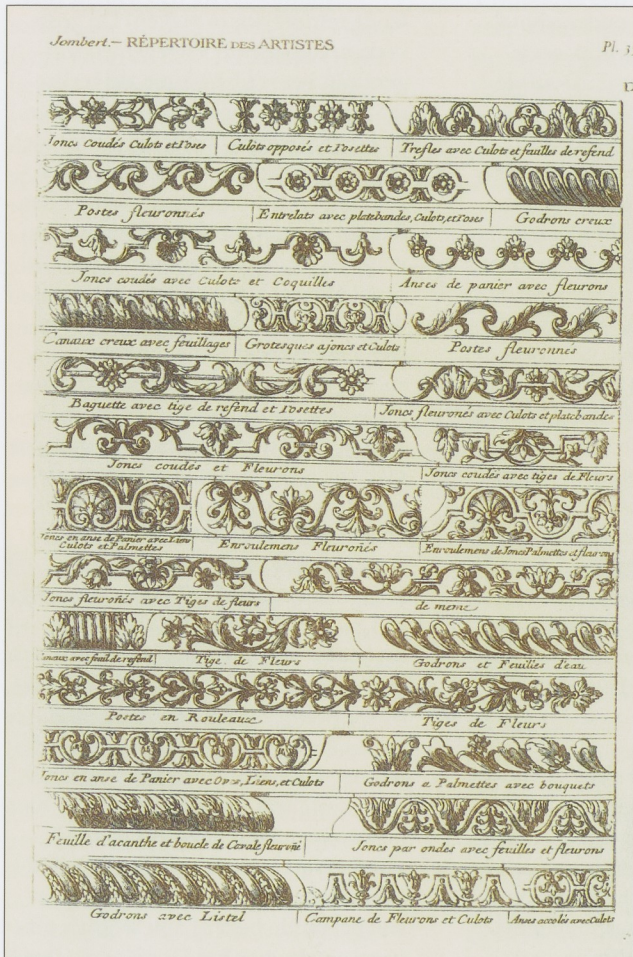 Jombert.— RÉPERTOIRE DES ARTISTES
Pl. 3
Joncs coudés Culots et Roses
Culots opposés et Rosettes
Trefles avec Culots et feuilles de refend
Postes fleuronnés
Entrelats avec platebandes, Culots, et roses
Godrons creux
Joncs coudés avec Culots et Coquilles
Anses de panier avec fleurons
Canaux creux avec feuillages
Grotesques a joncs et Culots
Postes fleuronnés
Baguette avec tige de refend et Rosettes
Joncs fleuronés avec Culots et platebandes
Joncs coudés et Fleurons
Joncs coudés avec tiges de Fleurs
Joncs en anse de Panier avec Liens
Culots et Palmettes
Enroulemens Fleuroñés
Enroulemens de Joncs Palmettes et fleurons
Joncs fleuroñés avec Tiges de fleurs
de meme
Canaux avec feuil de refend
Tige de Fleurs
Godrons et Feuilles d'eau
Postes en Rouleaux
Tiges de Fleurs
Joncs en anse de Panier avec Ove, Liens, et Culots
Godrons a Palmettes avec bouquets
Feuille d'acanthe et boucle de Cavale fleuroñé
Joncs par ondes avec feuilles et fleurons
Godrons avec Listel
Campane de Fleurons et Culots
Anses accolés avec Culots